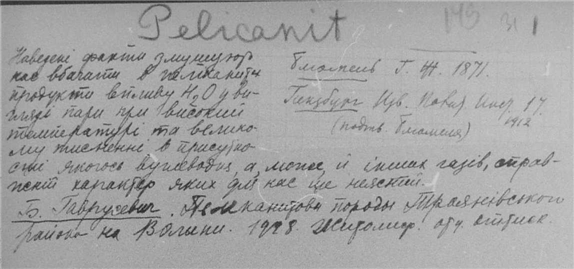 Pelicanit
149 31 1
Наведені факти змушують
нас вбачати в пеліканіті
продукти впливу H2O у ви-
гляді пари при високій
температурі та велико-
му тисненні в присутно-
сті якогось вуглеводня, а може й інших газів, справ-
жній характер яких для нас ще неясний.
Г. Ж. 1871.
Гинзбург Изв. Новая 17.
1912
Б. Гаврусевич. Пеліканітові породи Трояновського
району на Волині. 1928 Житомир.